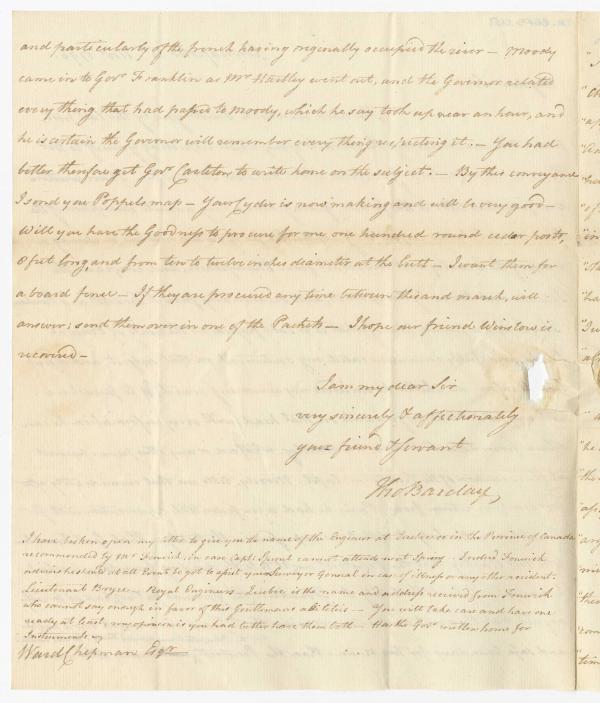 and particularly of the french having originally occupied the river — Moody
came in to Govr Franklin as Mr Hartley went out, and the Governor related
every thing that had passed to Moody, which he say took up near an hour, and
he is certain the Governor will remember every thing respecting it. — You had
better therefore get Govr Carleton to write home on the subject. — By this conveyance
I send you Popples map — Your Cyder is now making and will be very good —
Will you have the Goodness to procure for me one hundred round cedar posts,
8 feet long, and from ten to twelve inches diameter at the butt — I want them for
a board fence — If they are procured any time between this and march, will
answer; send them over in one of the Packets — I hope our friend Winslow is
recovered —
I am my dear Sir
very sincerely & affectionately
your friend & servant
Tho Barclay,
I have broken open my letter to give you the name of the Engineer at Quebec or in the Province of Canada
recommended by Mr Fenwick, in case Capt. Sproul cannot attend next Spring — Indeed Fenwick
advises at all Events be got to assist your Surveyor General in case of illness or any other accident.
Lieutenant Boyce — Royal Engineers — Quebec, is the name and address received from Fenwick
who cannot say enough in favor of this Gentlemans abilities — You will take care and have one
ready at least, my opinion is you had better have them both — Has the Govr written home for
Instruments —
Ward Chipman Esqr